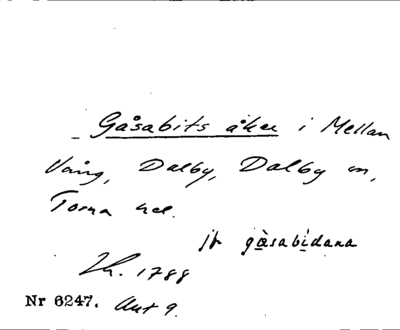 Gåsabits åker i Mellan
Vång, Dalby, Dalby sn,
Torna hd.
jfr gåsabidana
1788
Nr 6247. Aut 9.